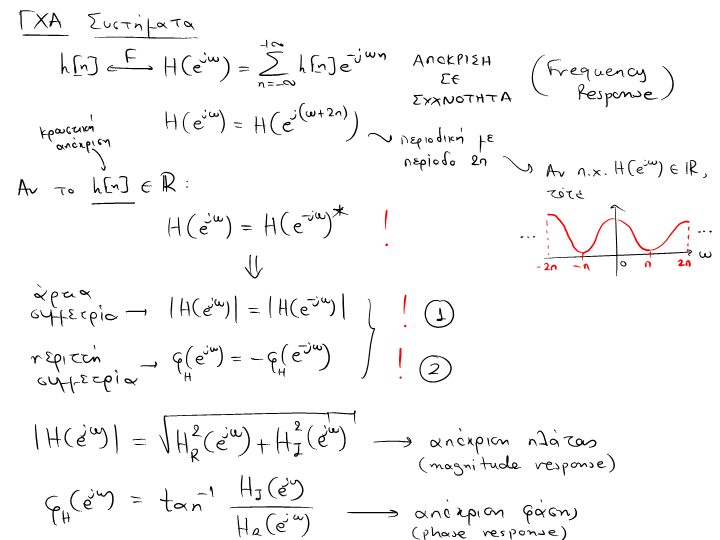 ΓΧΑ Συστήματα
h[n] ⟷^F H(e^{jω}) = \sum_{n=-∞}^{+∞} h[n] e^{-jωn} ΑΠΟΚΡΙΣΗ ΣΕ ΣΥΧΝΟΤΗΤΑ (Frequency Response)
H(e^{jω}) = H(e^{j(ω+2π)}) → περιοδική με περίοδο 2π → Αν π.χ. H(e^{jω}) ∈ ℝ, τότε
κρουστική απόκριση
Αν το h[n] ∈ ℝ:
... -2π -π 0 π 2π ω ...
H(e^{jω}) = H(e^{-jω})* !
⇓
άρτια συμμετρία → |H(e^{jω})| = |H(e^{-jω})| ! 1
περιττή συμμετρία → φ_H(e^{jω}) = -φ_H(e^{-jω}) ! 2
|H(e^{jω})| = \sqrt{H_R^2(e^{jω}) + H_I^2(e^{jω})} → απόκριση πλάτους (magnitude response)
φ_H(e^{jω}) = tan^{-1} \frac{H_I(e^{jω})}{H_R(e^{jω})} → απόκριση φάσης (phase response)